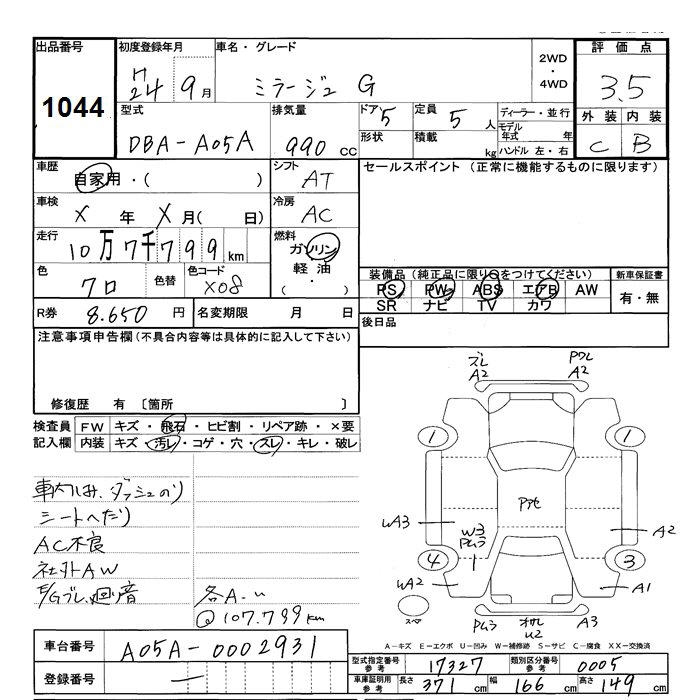 出品番号 初度登録年月 車名・グレード 2WD・4WD 評価点
1044 H24 9月 ミラージュ G 3.5
型式 排気量 ドア 5 定員 5人 ディーラー・並行 外装 内装
DBA-A05A 990cc 形状 積載 kg モデル年式 年 ハンドル 左・右 C B
車歴 自家用・( ) シフト AT セールスポイント (正常に機能するものに限ります)
車検 X年 X月( 日) 冷房 AC
走行 10万7千799km 燃料 ガソリン・軽油・( )
色 クロ 色替 色コード X08 装備品 (純正品に限り○をつけてください) 新車保証書
PS PW ABS エアB AW 有・無
SR ナビ TV カワ
R券 8.650円 名変期限 月 日 後日品
注意事項申告欄(不具合内容等は具体的に記入して下さい)
修復歴 有 〔箇所 〕
検査員 FW キズ・飛石・ヒビ割・リペア跡・×要
記入欄 内装 キズ・汚レ・コゲ・穴・スレ・キレ・破レ
車内しみ、ダッシュのり
シートへたり
AC不良
社外AW
E/Gブレ、廻音
107.799km
ズレ A2 Pクレ A2
1 1
Pアセ
UA3 W3 Pムラ A2
4 1 3
UA2 A1
スマ Pムラ オカレ U2 A3
A-キズ E-エクボ U-凹み W-補修跡 S-サビ C-腐食 XX-交換済
車台番号 A05A-0002931
登録番号 —
型式指定番号 参考 17327 類別区分番号 参考 0005
車庫証明用 参考 長さ 371cm 幅 166cm 高さ 149cm